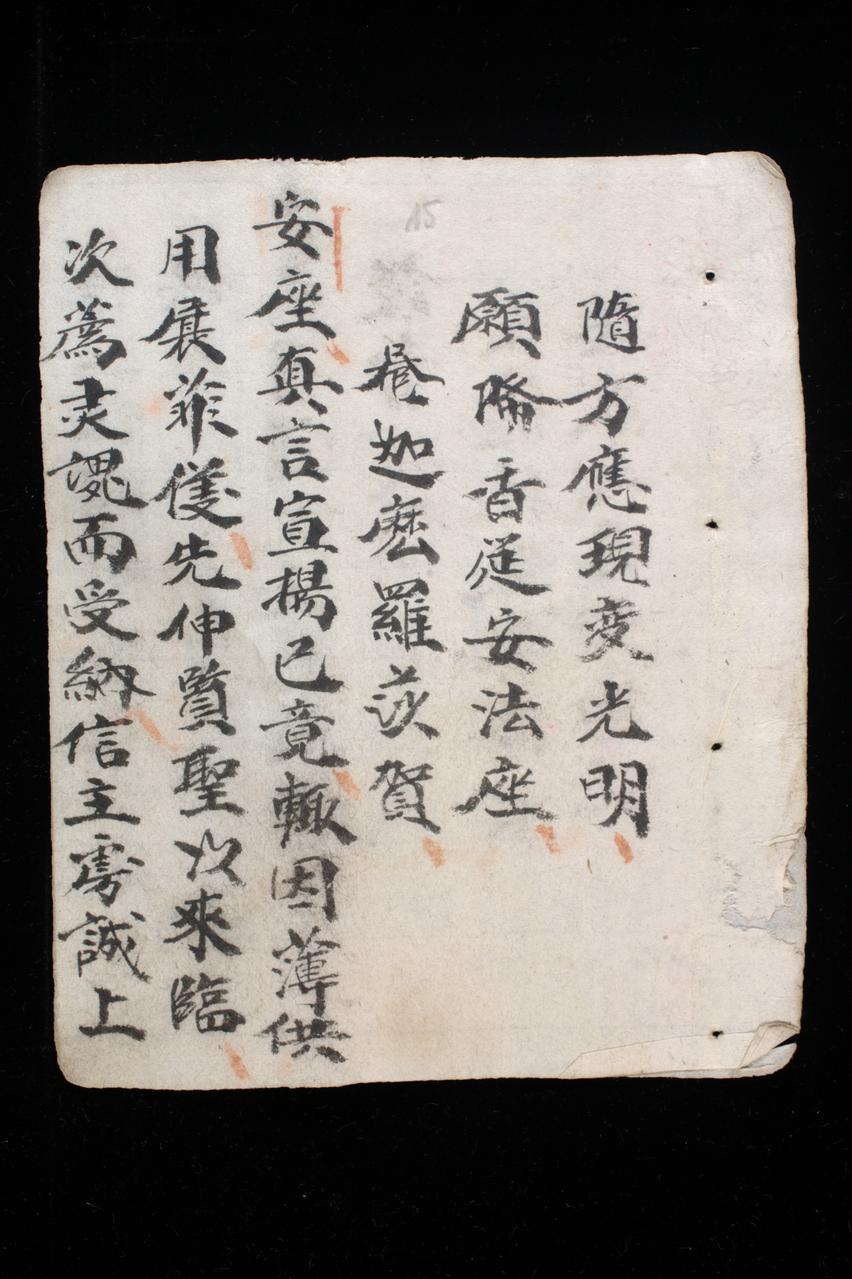 隨方應現变光明
願降香筵安法座
唵迦麽羅莎賀
安座真言宣揚已竟輙因薄供
用展菲儀先伸賢聖以來臨
次薦灵魂而受納信主虔誠上
15